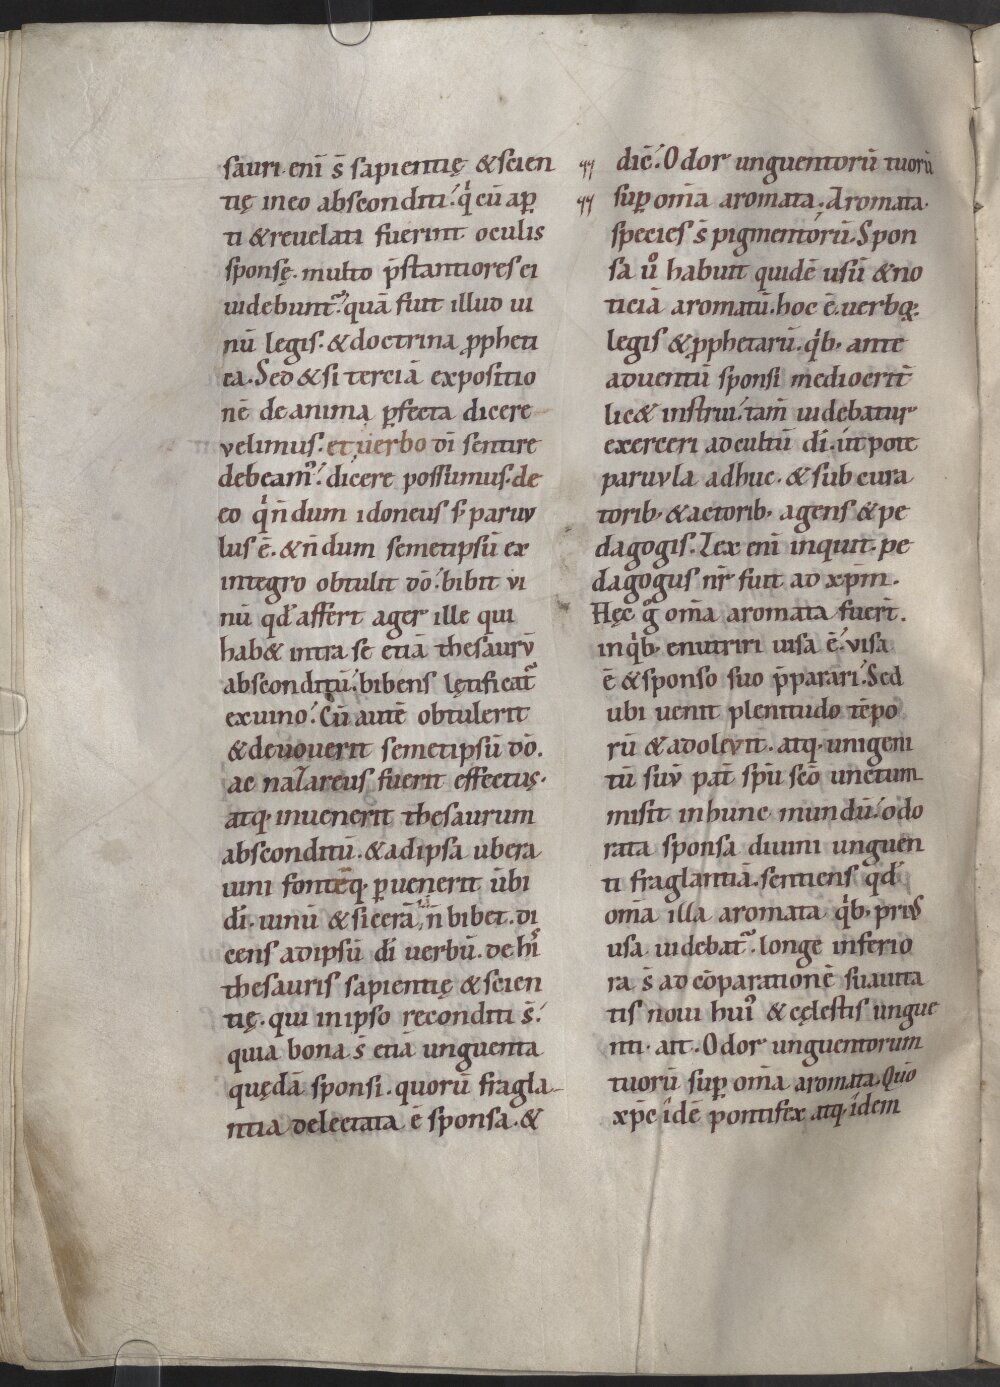 sauri enī s̄ sapientię & scien
tię in eo absconditi. q̇ cū ap̱
ti & reuelati fuerint oculis
sponsę. multo p̄stantiores ei
uidebunt᷑. quā fuit illud ui
nū legis. & doctrina ꝓpheti
ca. Sed & si terciā expositio
nē de anima ꝑfecta dicere
velimus. et uerbo dī sentire
debeam᷒. dicere possumus. de
eo q̇ n̄dum idoneus s; paruv
lus ē. & n̄dum semetipsū ex
integro obtulit dō. bibit vi
nū qd́ affert ager ille qui
hab& intra se etiā thesaurv̄
absconditū. bibens lętificat᷑
ex uino. Cū autē obtulerit
& deuouerit semetipsū dō.
ac nazareus fuerit effectus.
atq; inuenerit thesaurum
absconditū. & ad ipsa ubera
uini fontēq; ꝑuenerit ūbi
dī. uinū & sicerā n̄ bibet. di
cens ad ipsū dī uerbū. de hi᷒
thesauris sapientię & scien
tię. qui in ipso reconditi s̄.
quia bona s̄ etiā unguenta
quędā sponsi. quorū fragla-
ntia delectata ē sponsa. &
dic̄. Odor unguentorū tuorū
suꝑ om̄a aromata. Aromata.
species s̄ pigmentorū. Spon
sa u͛o habuit quidē usū & no
ticiā aromatū. hoc ē. uerboꝝ
legis & ꝓphetarū. q̇b; ante
aduentū sponsi mediocrit̄
lic& instrui. tam̄ uidebatur
exerceri ad cultū dī. ut pote
paruvla adhuc. & sub cura
torib; & actorib; agens & pe
dagogis. Lex enī inquit. pe
dagogus nr̄ fuit ad xp̄m.
Hęc g͛ om̄a aromata fuer̄t.
in q̇b; enutriri uisa ē. visa
ē & sponso suo p̄parari. Sed
ubi uenit plenitudo tēpo
rū & adolevit. atq; unigeni
tū suv̄ pat̄ spū scō unctum
misit in hunc mundū. odo
rata sponsa diuini unguen
ti fraglantiā. sentiens qd́
om̄a illa aromata q̇b; priv᷒
usa uidebat᷑. longe inferio
ra s̄ ad cōparationē suauita
tis noui hui᷒ & cęlestis ungue
nti. ait. Odor unguentorum
tuorū suꝑ om̄a aromata. Qm̄o
xp̄c idē pontifex atq; idem